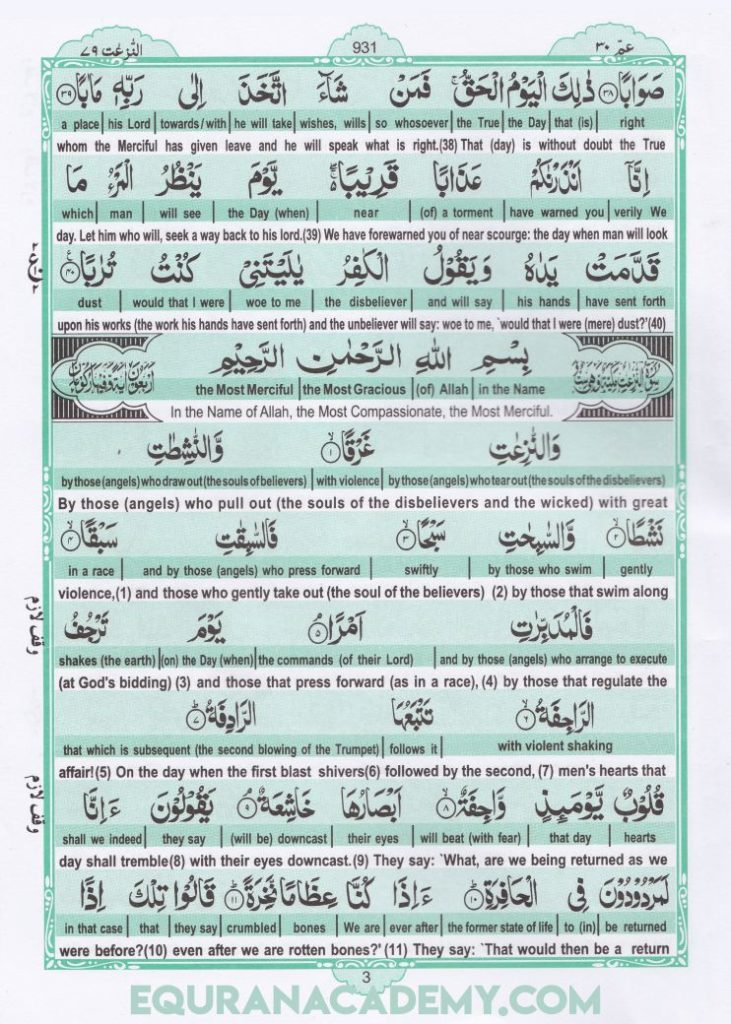 النّٰزعٰت ٧٩ 931 عمّ ٣٠
صَوَابًا ﴿٣٨﴾ ذٰلِكَ الْيَوْمُ الْحَقُّ ۚ فَمَنْ شَآءَ اتَّخَذَ اِلٰى رَبِّهٖ مَاٰبًا ﴿٣٩﴾
a place | his Lord | towards/with | he will take | wishes, wills | so whosoever | the True | the Day | that (is) | right
whom the Merciful has given leave and he will speak what is right.(38) That (day) is without doubt the True
اِنَّاۤ اَنْذَرْنٰكُمْ عَذَابًا قَرِيْبًا ۚۖ يَّوْمَ يَنْظُرُ الْمَرْءُ مَا
which | man | will see | the Day (when) | near | (of) a torment | have warned you | verily We
day. Let him who will, seek a way back to his lord.(39) We have forewarned you of near scourge: the day when man will look
قَدَّمَتْ يَدٰهُ وَيَقُوْلُ الْكٰفِرُ يٰلَيْتَنِيْ كُنْتُ تُرٰبًا ﴿٤٠﴾
dust | would that I were | woe to me | the disbeliever | and will say | his hands | have sent forth
upon his works (the work his hands have sent forth) and the unbeliever will say: woe to me, `would that I were (mere) dust?'(40)
بِسْمِ اللهِ الرَّحْمٰنِ الرَّحِيْمِ
the Most Merciful | the Most Gracious | (of) Allah | in the Name
In the Name of Allah, the Most Compassionate, the Most Merciful.
وَالنّٰزِعٰتِ غَرْقًا ﴿١﴾ وَّالنّٰشِطٰتِ
by those (angels) who draw out (the souls of believers) | with violence | by those (angels) who tear out (the souls of the disbelievers)
By those (angels) who pull out (the souls of the disbelievers and the wicked) with great
نَشْطًا ﴿٢﴾ وَّالسّٰبِحٰتِ سَبْحًا ﴿٣﴾ فَالسّٰبِقٰتِ سَبْقًا ﴿٤﴾
in a race | and by those (angels) who press forward | swiftly | by those who swim | gently
violence,(1) and those who gently take out (the soul of the believers) (2) by those that swim along
فَالْمُدَبِّرٰتِ اَمْرًا ﴿٥﴾ يَوْمَ تَرْجُفُ
وقف لازم
shakes (the earth) | (on) the Day (when) | the commands (of their Lord) | and by those (angels) who arrange to execute
(at God's bidding) (3) and those that press forward (as in a race), (4) by those that regulate the
الرَّاجِفَةُ ﴿٦﴾ تَتْبَعُهَا الرَّادِفَةُ ﴿٧﴾
that which is subsequent (the second blowing of the Trumpet) | follows it | with violent shaking
affair!(5) On the day when the first blast shivers(6) followed by the second, (7) men's hearts that
قُلُوْبٌ يَّوْمَئِذٍ وَّاجِفَةٌ ﴿٨﴾ اَبْصَارُهَا خَاشِعَةٌ ﴿٩﴾ يَقُوْلُوْنَ ءَاِنَّا
وقف لازم
shall we indeed | they say | (will be) downcast | their eyes | will beat (with fear) | that day | hearts
day shall tremble(8) with their eyes downcast.(9) They say: `What, are we being returned as we
لَمَرْدُوْدُوْنَ فِي الْحَافِرَةِ ﴿١٠﴾ ءَاِذَا كُنَّا عِظَامًا نَّخِرَةً ﴿١١﴾ قَالُوْا تِلْكَ اِذًا
in that case | that | they say | crumbled | bones | We are | ever after | the former state of life | to (in) | be returned
were before?(10) even after we are rotten bones?' (11) They say: `That would then be a return
3
EQURANACADEMY.COM